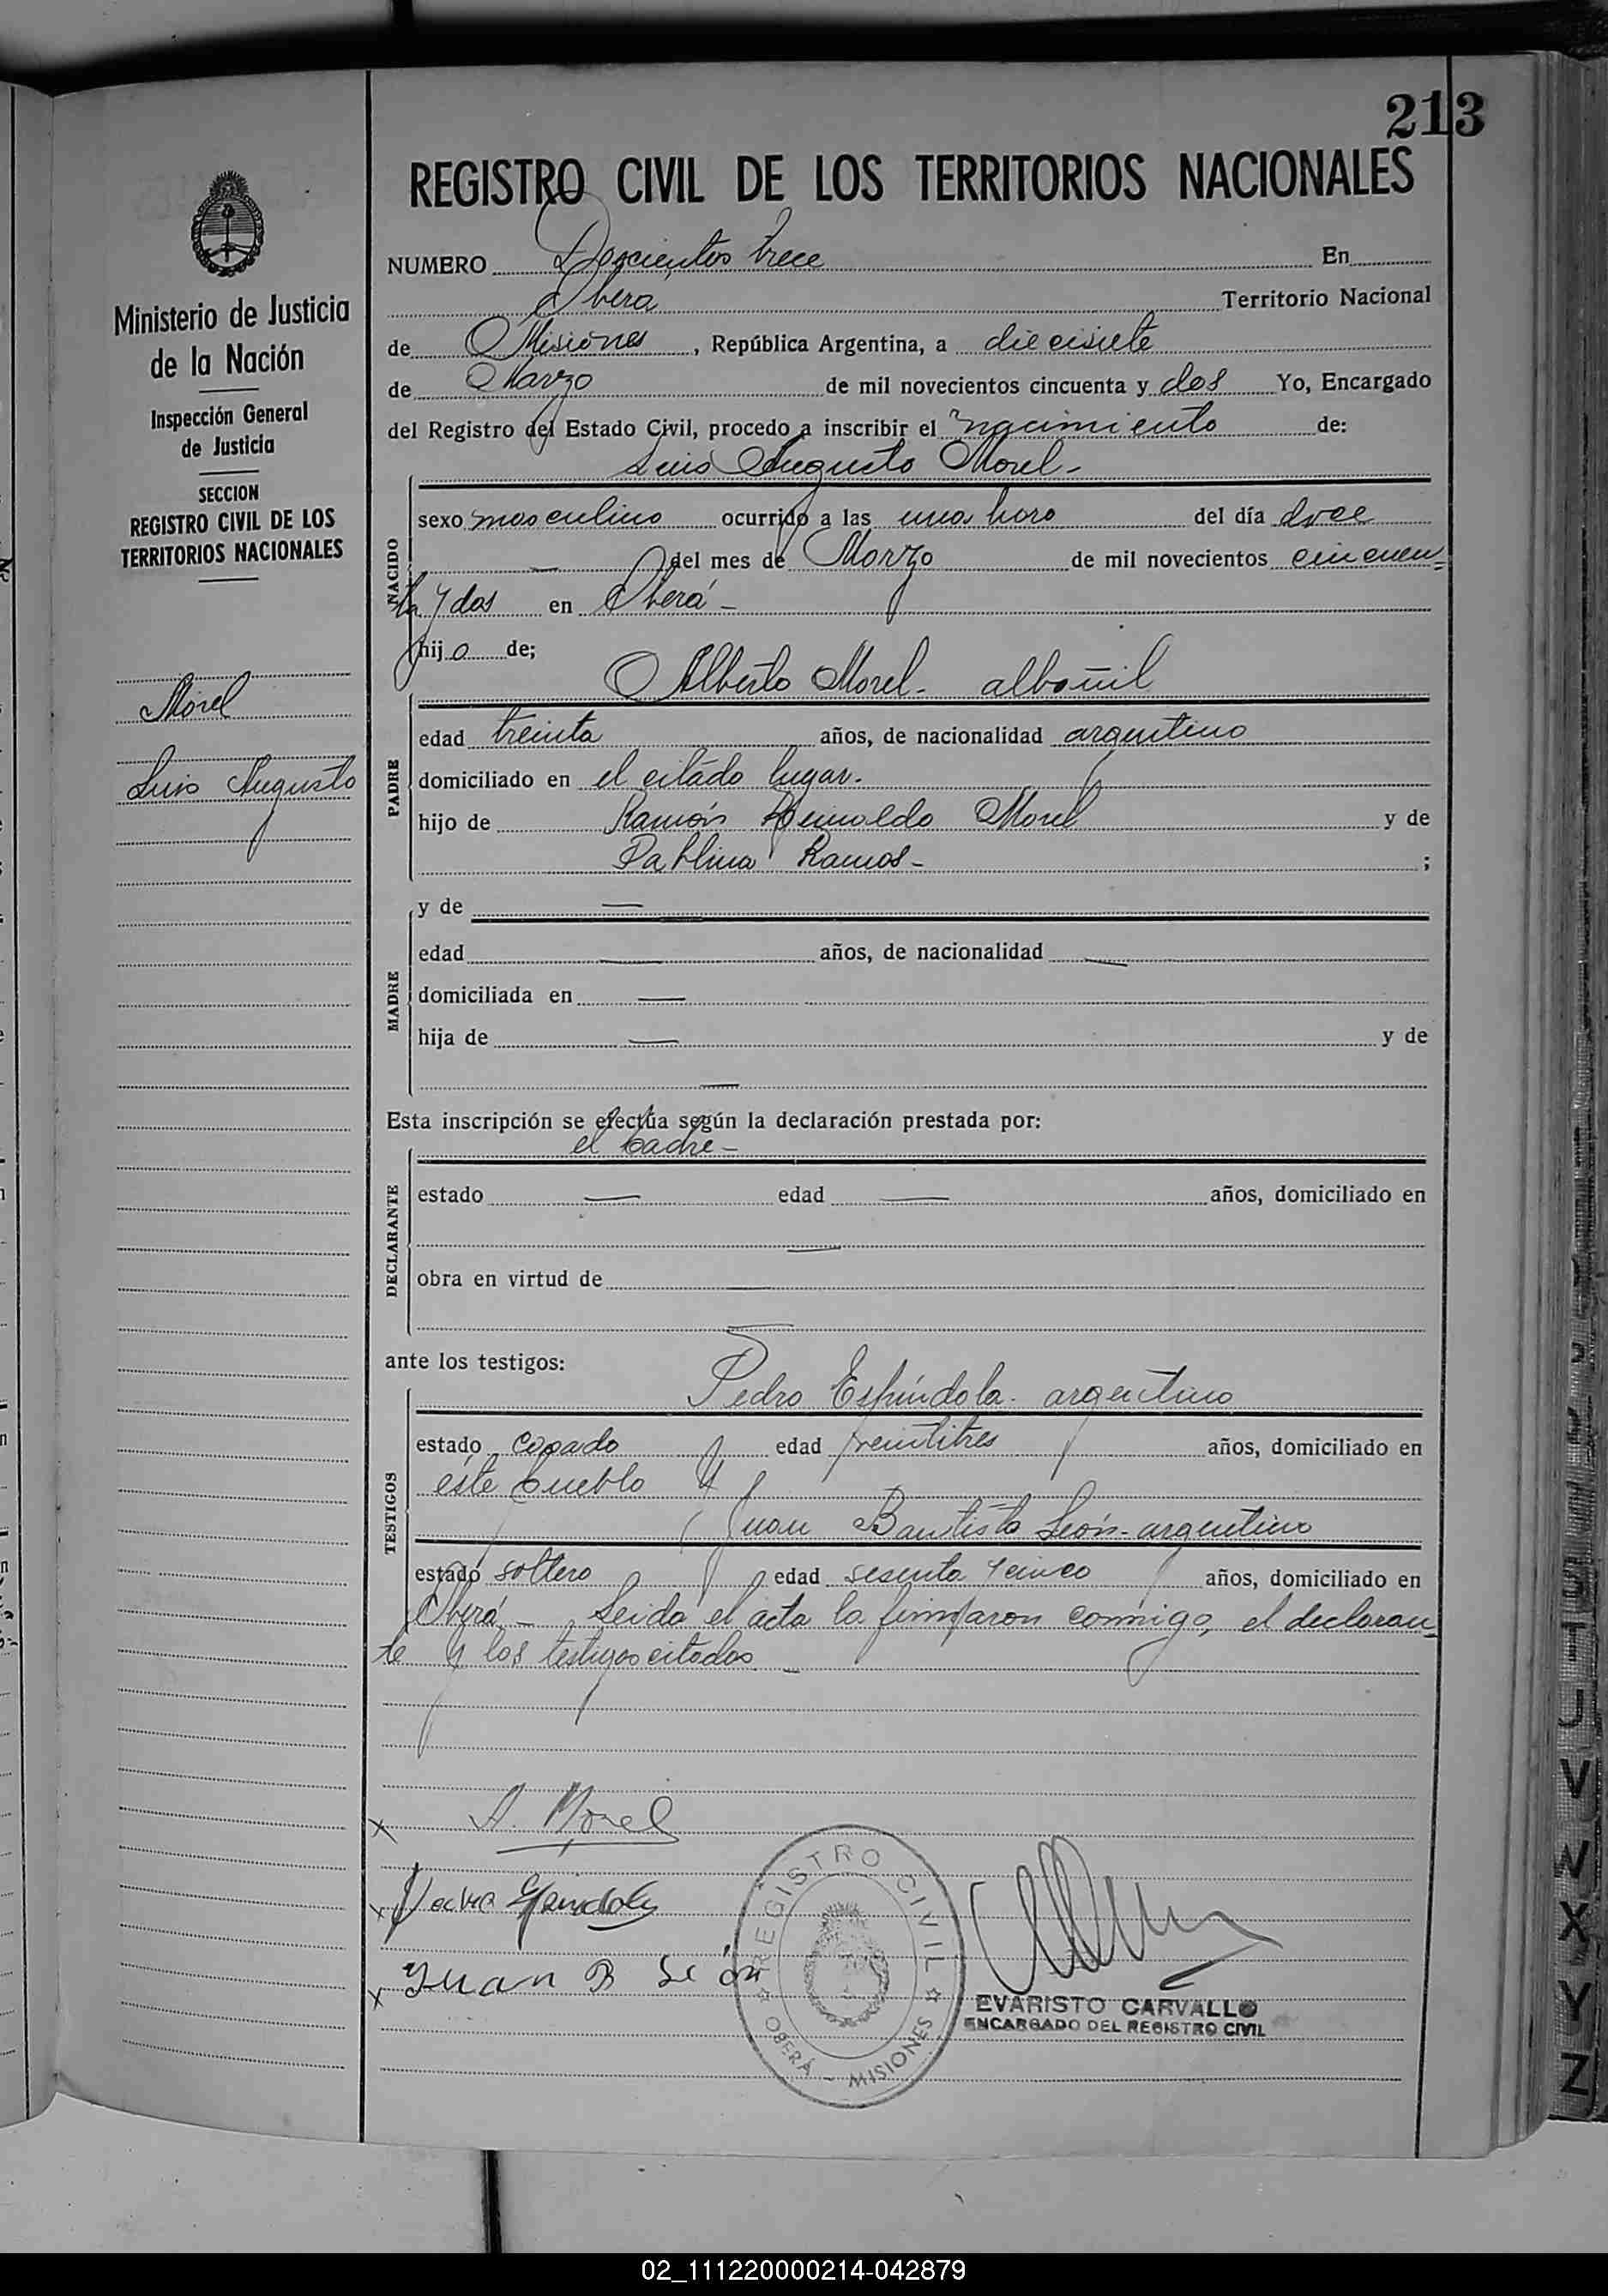 213
REGISTRO CIVIL DE LOS TERRITORIOS NACIONALES
NUMERO Doscientos trece En
Oberá Territorio Nacional
de Misiones, República Argentina, a diecisiete
de Marzo de mil novecientos cincuenta y dos Yo, Encargado
del Registro del Estado Civil, procedo a inscribir el nacimiento de:
Luis Augusto Morel-
NACIDO
sexo masculino ocurrido a las una hora del día doce
— del mes de Marzo de mil novecientos cincuen=
ta y dos en Oberá-
hijo de;
Alberto Morel- albañil
PADRE
edad treinta años, de nacionalidad argentino
domiciliado en el citado lugar.
hijo de Ramón Reinaldo Morel y de
Pablina Ramos- ;
MADRE
y de —
edad — años, de nacionalidad —
domiciliada en —
hija de — y de
—
Esta inscripción se efectúa según la declaración prestada por:
el padre-
DECLARANTE
estado — edad — años, domiciliado en
—
obra en virtud de —
—
ante los testigos:
Pedro Espíndola- argentino
TESTIGOS
estado casado edad veintitres años, domiciliado en
este pueblo y
Juan Bautista León- argentino
estado soltero edad sesenta y cinco años, domiciliado en
Oberá.- Leida el acta la firmaron conmigo, el declaran-
te y los testigos citados-
Ministerio de Justicia
de la Nación
Inspección General
de Justicia
SECCION
REGISTRO CIVIL DE LOS
TERRITORIOS NACIONALES
Morel
Luis Augusto
x A. Morel
x Pedro Espindola
x Juan B León
REGISTRO CIVIL
OBERÁ - MISIONES
EVARISTO CARVALLO
ENCARGADO DEL REGISTRO CIVIL
U
V
W
X
Y
Z
02_111220000214-042879